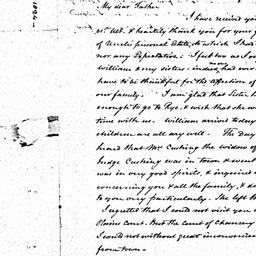 My dear Father
I have received your
21st Oct. & heartily thank you for your
of Uncle's personal Estate, to which I had
nor any Expectation. I feel too as I
William & my sisters had
have to be thankful for the affection of
our family. I am glad that Sister
enough to go to Rye, & wish that she
time with us. William arrived today
children are all very well. The day
heard that Mrs Cushing the widow of
Judge Cushing was in town & went
was in very good spirits, & inquired
concerning you & all the family, & de
to you very particularly. She left
I regretted that I could not visit you
Plains Court. But the Court of Chancery
I could not without great inconvenience
from town.